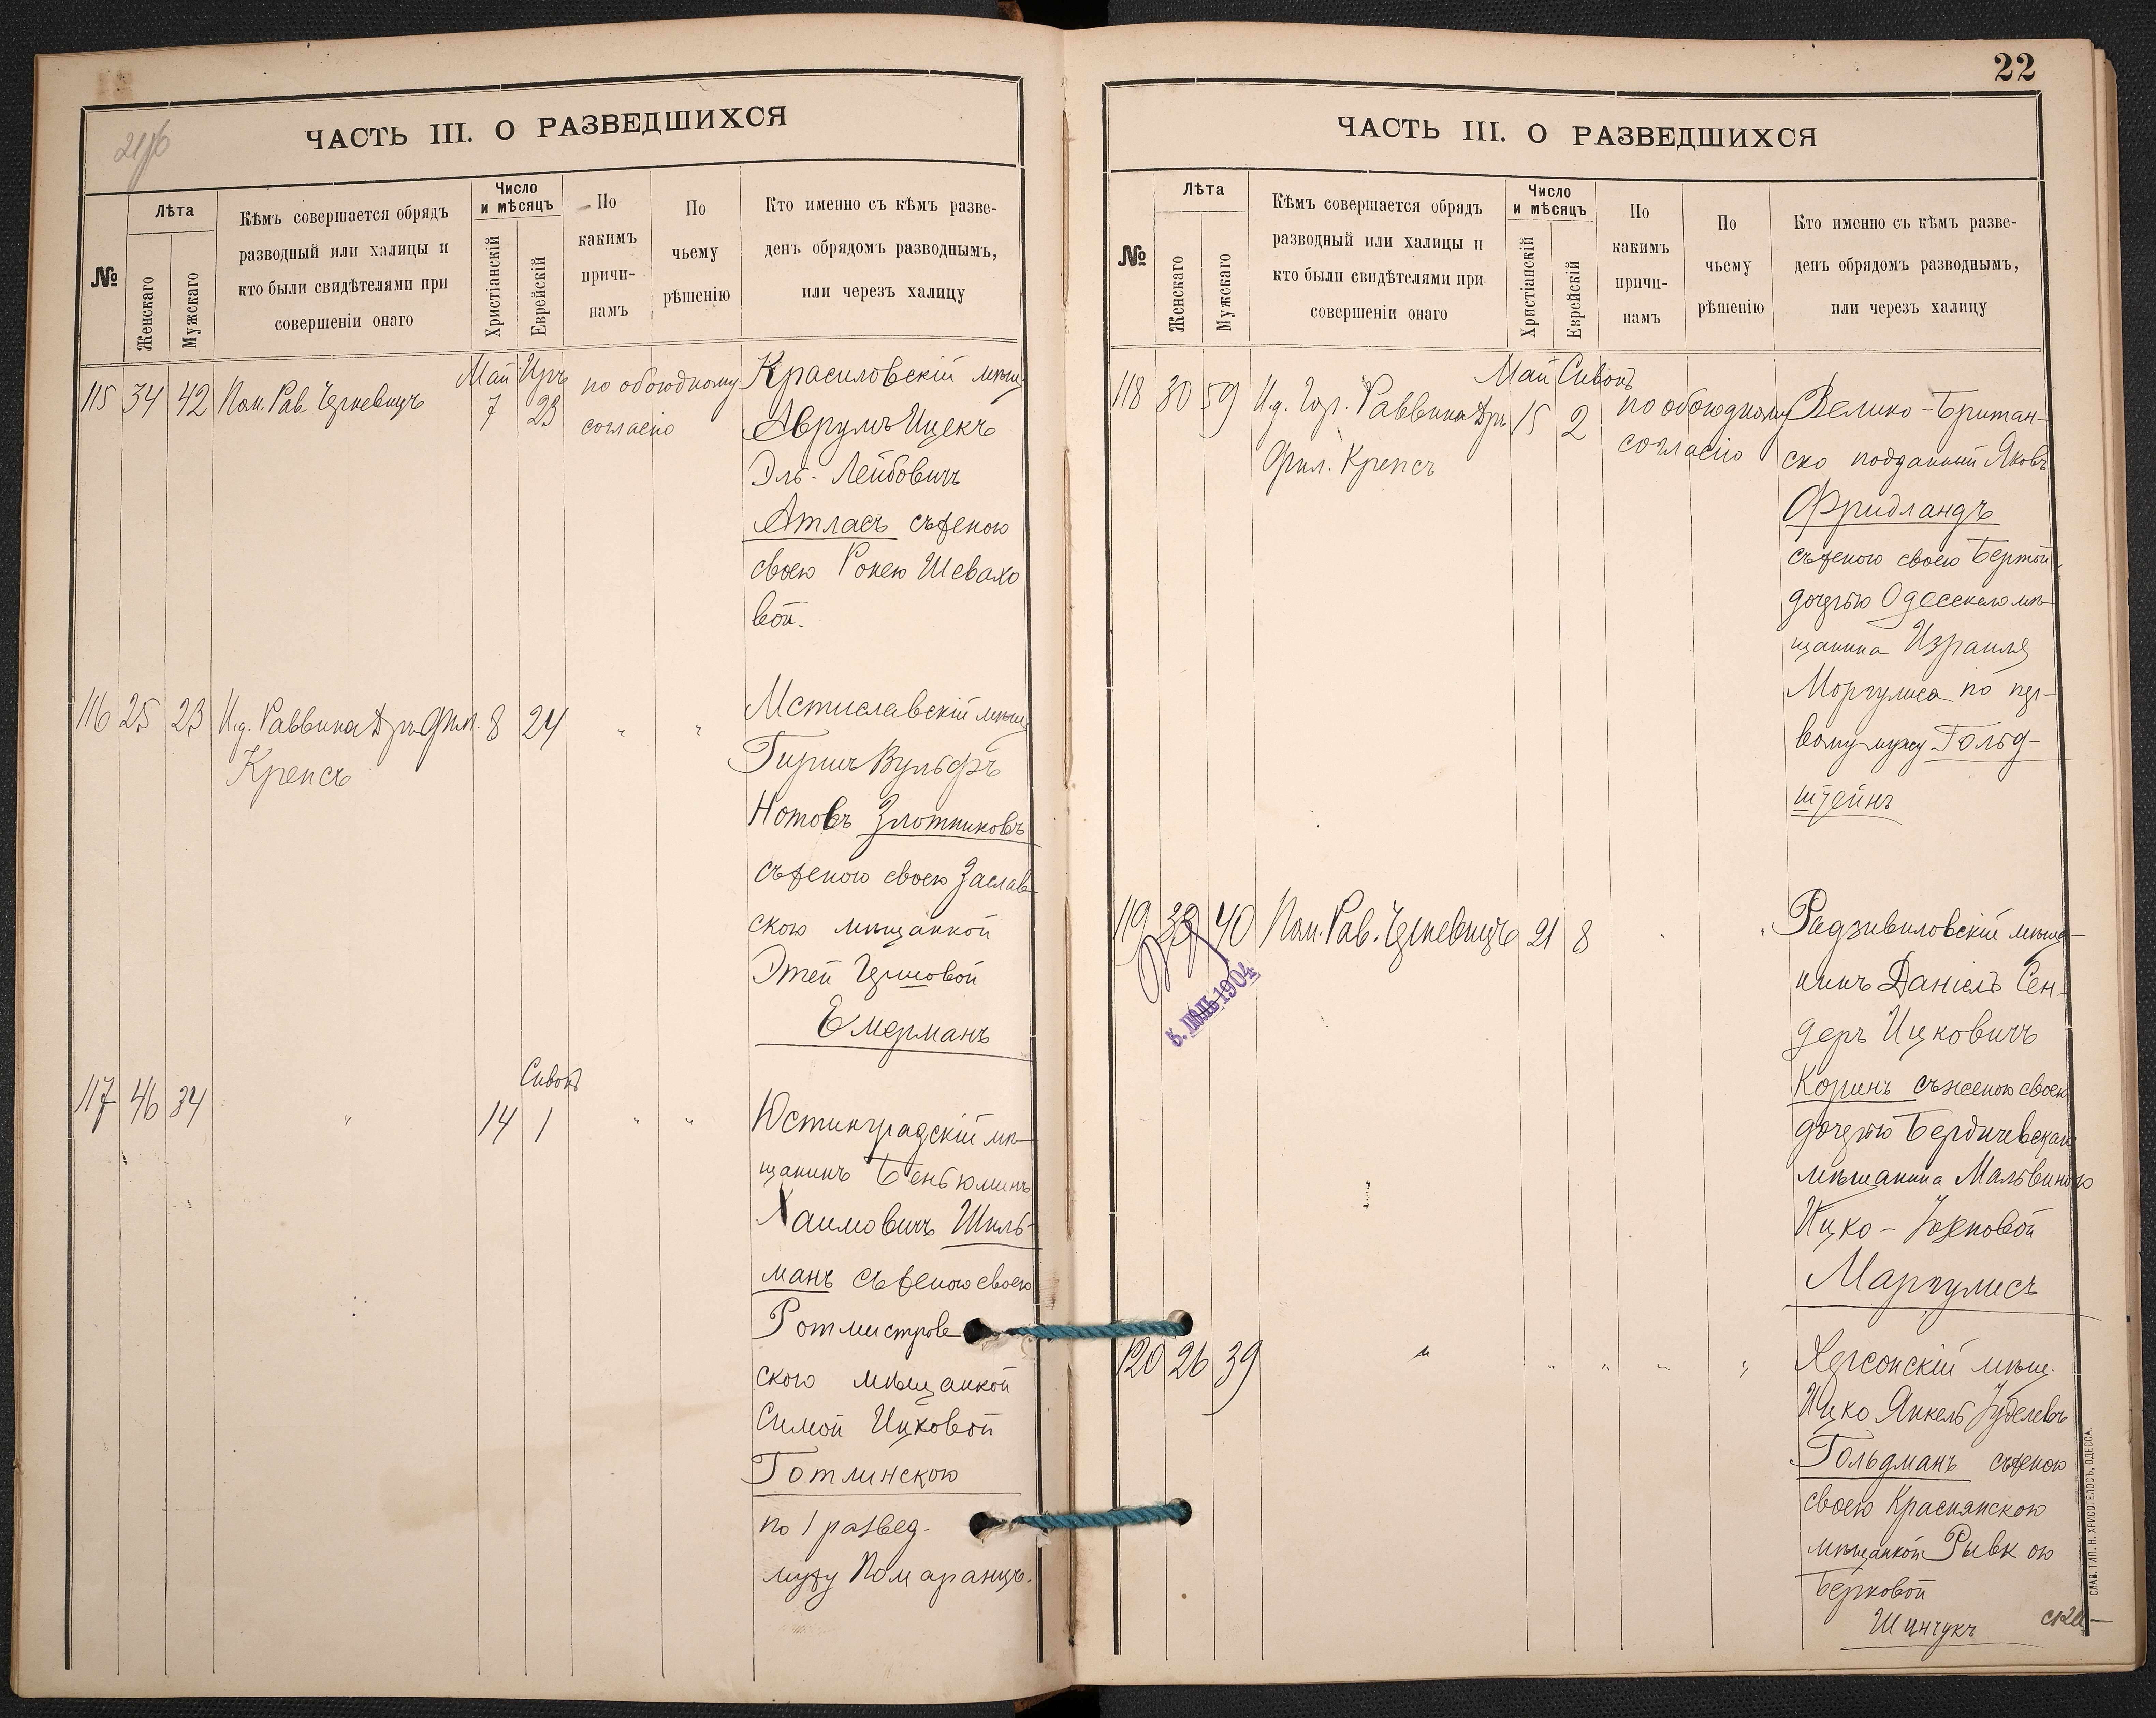 ЧАСТЬ III. О РАЗВЕДШИХСЯ
№
Лѣта
Женскаго
Мужскаго
Кѣмъ совершается обрядъ
разводный или халицы и
кто были свидѣтелями при
совершеніи онаго
Число
и мѣсяцъ
Христіанскій
Еврейскій
По
какимъ
причи-
намъ
По
чьему
рѣшенію
Кто именно съ кѣмъ разве-
денъ обрядомъ разводнымъ,
или черезъ халицу
Май Иръ
115 34 42 Пом. Рав. Черкевичъ 7 23 по обоюдному
согласію
Красиловскій мѣщ.
Аврумъ Ицекъ
Эль-Лейбовичъ
Атласъ съ женою
своею Рокею Шевахо
вой.
116 25 23 И.д. Раввина Дръ Фил. 8 24 " "
Крепсъ
Мстиславскій мѣщ.
Гиршъ Вульфъ
Нотовъ Злотниковъ
съ женою своею Заслав-
скою мѣщанкой
Этей Гершовой
Емерманъ
Сивонъ
117 46 34 " 14 1 " "
Юстинградскій мѣ-
щанинъ Беньюминъ
Хаимовичъ Шиль-
манъ съ женою своею
Ротмистров
скою мѣщанкой
Симой Ицковой
Готлинскою
по 1 развед.
мужу Помаранцъ.
22
ЧАСТЬ III. О РАЗВЕДШИХСЯ
№
Лѣта
Женскаго
Мужскаго
Кѣмъ совершается обрядъ
разводный или халицы и
кто были свидѣтелями при
совершеніи онаго
Число
и мѣсяцъ
Христіанскій
Еврейскій
По
какимъ
причи-
намъ
По
чьему
рѣшенію
Кто именно съ кѣмъ разве-
денъ обрядомъ разводнымъ,
или черезъ халицу
Май Сивонъ
118 30 59 И.д. Гор. Раввина Дръ 15 2 по обоюдному
Фил. Крепсъ согласію
Велико-Британ-
ско подданный Яковъ
Фридландъ
съ женою своею Бертой
дочерью Одесскаго мѣ-
щанина Израиля
Моргулиса по пер-
вому мужу Гольд-
штейнъ
119 39 40 Пом. Рав. Черкевичъ 21 8 " "
5. 1904
Радзивиловскій мѣща-
нинъ Даніелъ Сен-
деръ Ицковичъ
Коринъ съ женою своею
дочерью Бердичевскаго
мѣщанина Мальвиною
Ицко-Іосиповой
Маргулисъ
120 26 39 " " " " "
Херсонскій мѣщ.
Ицко Янкель Іуделевъ
Гольдманъ съ женою
своею Краснянскою
мѣщанкой Рывкою
Берковой
Шинчукъ
СЛАВ. ТИП. Н. ХРИСОГЕЛОСЪ, ОДЕССА.